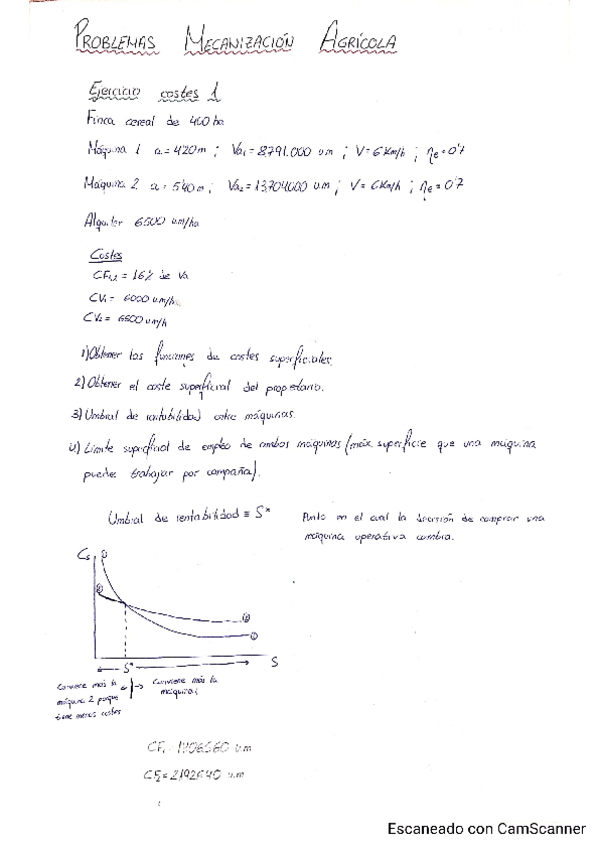 PROBLEMAS MECANIZACIÓN AGRÍCOLA
Ejercicio costes 1
Finca cereal de 400 ha
Máquina 1 a = 4'20 m ; Va₁ = 8791.000 um ; V = 6 Km/h ; ηe = 0'7
Máquina 2 a = 5'40 m ; Va₂ = 13704000 u.m ; V = 6 Km/h ; ηe = 0'7
Alquiler 6500 um/ha
Costes
CF₁,₂ = 16% de Va
CV₁ = 6000 um/h
CV₂ = 6500 um/h
1) Obtener las funciones de costes superficiales.
2) Obtener el coste superficial del propietario.
3) Umbral de rentabilidad entre máquinas.
4) Límite superficial de empleo de ambas máquinas (máx superficie que una máquina
puede trabajar por campaña).
Umbral de rentabilidad ≡ S*
Punto en el cual la decisión de comprar una
máquina operativa cambia.
Cs
S*
S
Conviene más la
máquina 2 porque
tiene menos costes
Conviene más la
máquina 1
CF₁ = 1406560 u.m
CF₂ = 2192640 u.m
Escaneado con CamScanner